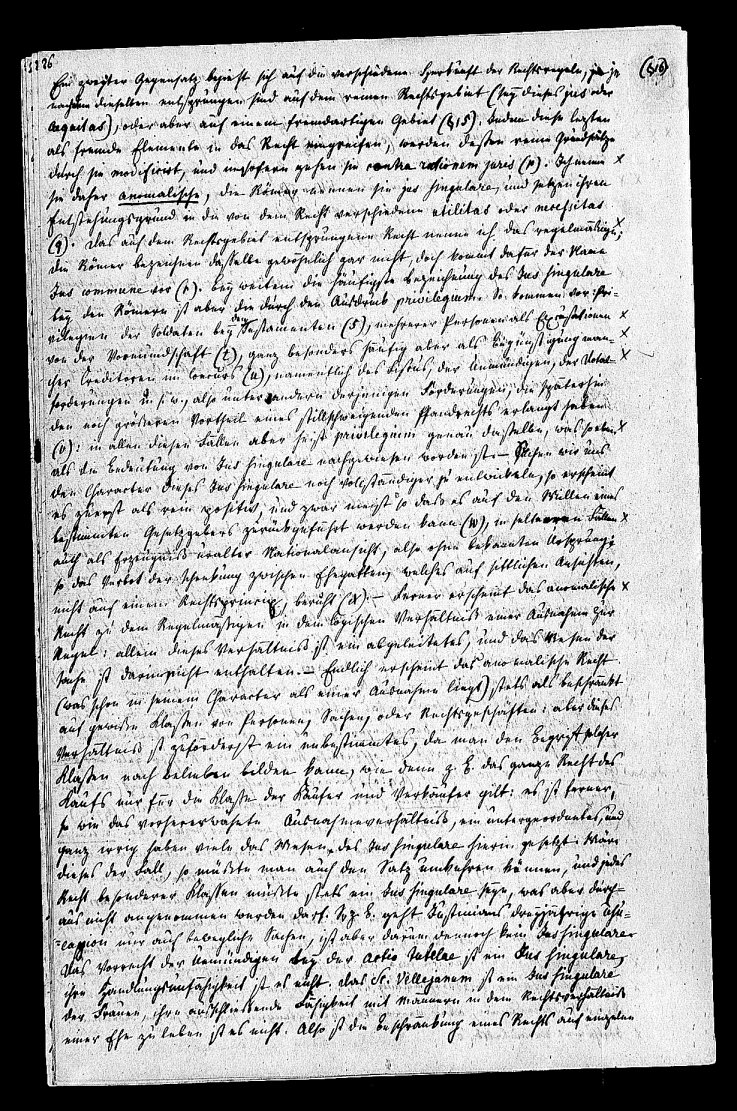 § 226
(§16)
Ein zweyter Gegensatz bezieht sich auf die verschiedene Herkunft der Rechtsregeln, je
nachdem dieselben entsprungen sind auf dem reinen Rechtsgebiet (sey dieses jus oder
aequitas), oder aber auf einem fremdartigen Gebiet (§15). Indem diese letzten
als fremde Elemente in das Recht eingreifen, werden dessen reine Grundsätze
durch sie modificirt, und insofern gehen sie contra rationem juris (p). Ich nenne x
sie daher anomalische, die Römer nennen sie jus singulare, und setzen ihren
Entstehungsgrund in die von dem Recht verschiedene utilitas oder necessitas
(q). Das aus dem Rechtsgebiet entsprungene Recht nenne ich das regelmäßige; x
die Römer bezeichnen dasselbe gewöhnlich gar nicht, doch kommt dafür der Name
Jus commune vor (r). Bey weitem die häufigste Bezeichnung des Jus singulare
bey den Römern ist aber die durch den Ausdruck privilegium. So kommen vor: Pri-
vilegien der Soldaten bey den Testamenten (s), mehrerer Personen als Excusationen x
von der Vormundschaft (t), ganz besonders häufig aber als Begünstigung man- x
cher Creditoren im Concurs (u), namentlich des Fiscus, der Unmündigen, der Dotal- x
forderungen u. s. w., also unter andern derjenigen Forderungen, die späterhin
den noch größeren Vortheil eines stillschweigenden Pfandrechts erlangt haben
(v): in allen diesen Fällen aber heißt privilegium genau dasselbe, was so eben x
als die Bedeutung von Jus singulare nachgewiesen worden ist. – Suchen wir uns
den Character dieses Jus singulare noch vollständiger zu entwickeln, so erscheint
es zuerst als rein positiv, und zwar meist so daß es auf den Willen eines
bestimmten Gesetzgebers zurückgeführt werden kann (w), in seltneren Fällen x
auch als Erzeugniß uralter Nationalansicht, also ohne bekannten Ursprung;
so das Verbot der Schenkung zwischen Ehegatten, welches auf sittlichen Ansichten,
nicht auf einem Rechtsprincip, beruht (x). – Ferner erscheint das anomalische x
Recht zu dem Regelmäßigen in dem logischen Verhältniß einer Ausnahme zur
Regel: allein dieses Verhältniß ist ein abgeleitetes, und das Wesen der
Sache ist darin nicht enthalten. – Endlich erscheint das anomalische Recht
(was schon in seinem Character als einer Ausnahme liegt) stets als beschränkt
auf gewisse Klassen von Personen, Sachen, oder Rechtsgeschäften: aber dieses
Verhältniß ist zuförderst ein unbestimmtes, da man den Begriff solcher
Klassen nach belieben bilden kann, wie denn z. B. das ganze Recht des
Kaufs nur für die Klasse der Käufer und Verkäufer gilt: es ist ferner,
so wie das vorhererwähnte Ausnahmeverhältniß, ein untergeordnetes, und
ganz irrig haben viele das Wesen des Jus singulare hierin gesetzt. Wäre
dieses der Fall, so müßte man auch den Satz umkehren können, und jedes
Recht besonderer Klassen müßte stets ein Jus singulare seyn, was aber durch-
aus nicht angenommen werden darf. So z. B. geht Justinians dreyjährige Usu-
capion nur auf bewegliche Sachen, ist aber darum dennoch kein Jus singulare.
Das Vorrecht der Unmündigen bey der actio tutelae ist ein Jus singulare,
ihre Handlungsunfähigkeit ist es nicht. Das Sc. Vellejanum ist ein Jus singulare
der Frauen, ihre ausschließende Fähigkeit mit Männern in dem Rechtsverhältniß
einer Ehe zu leben ist es nicht. Also ist die Beschränkung eines Rechts auf einzelne